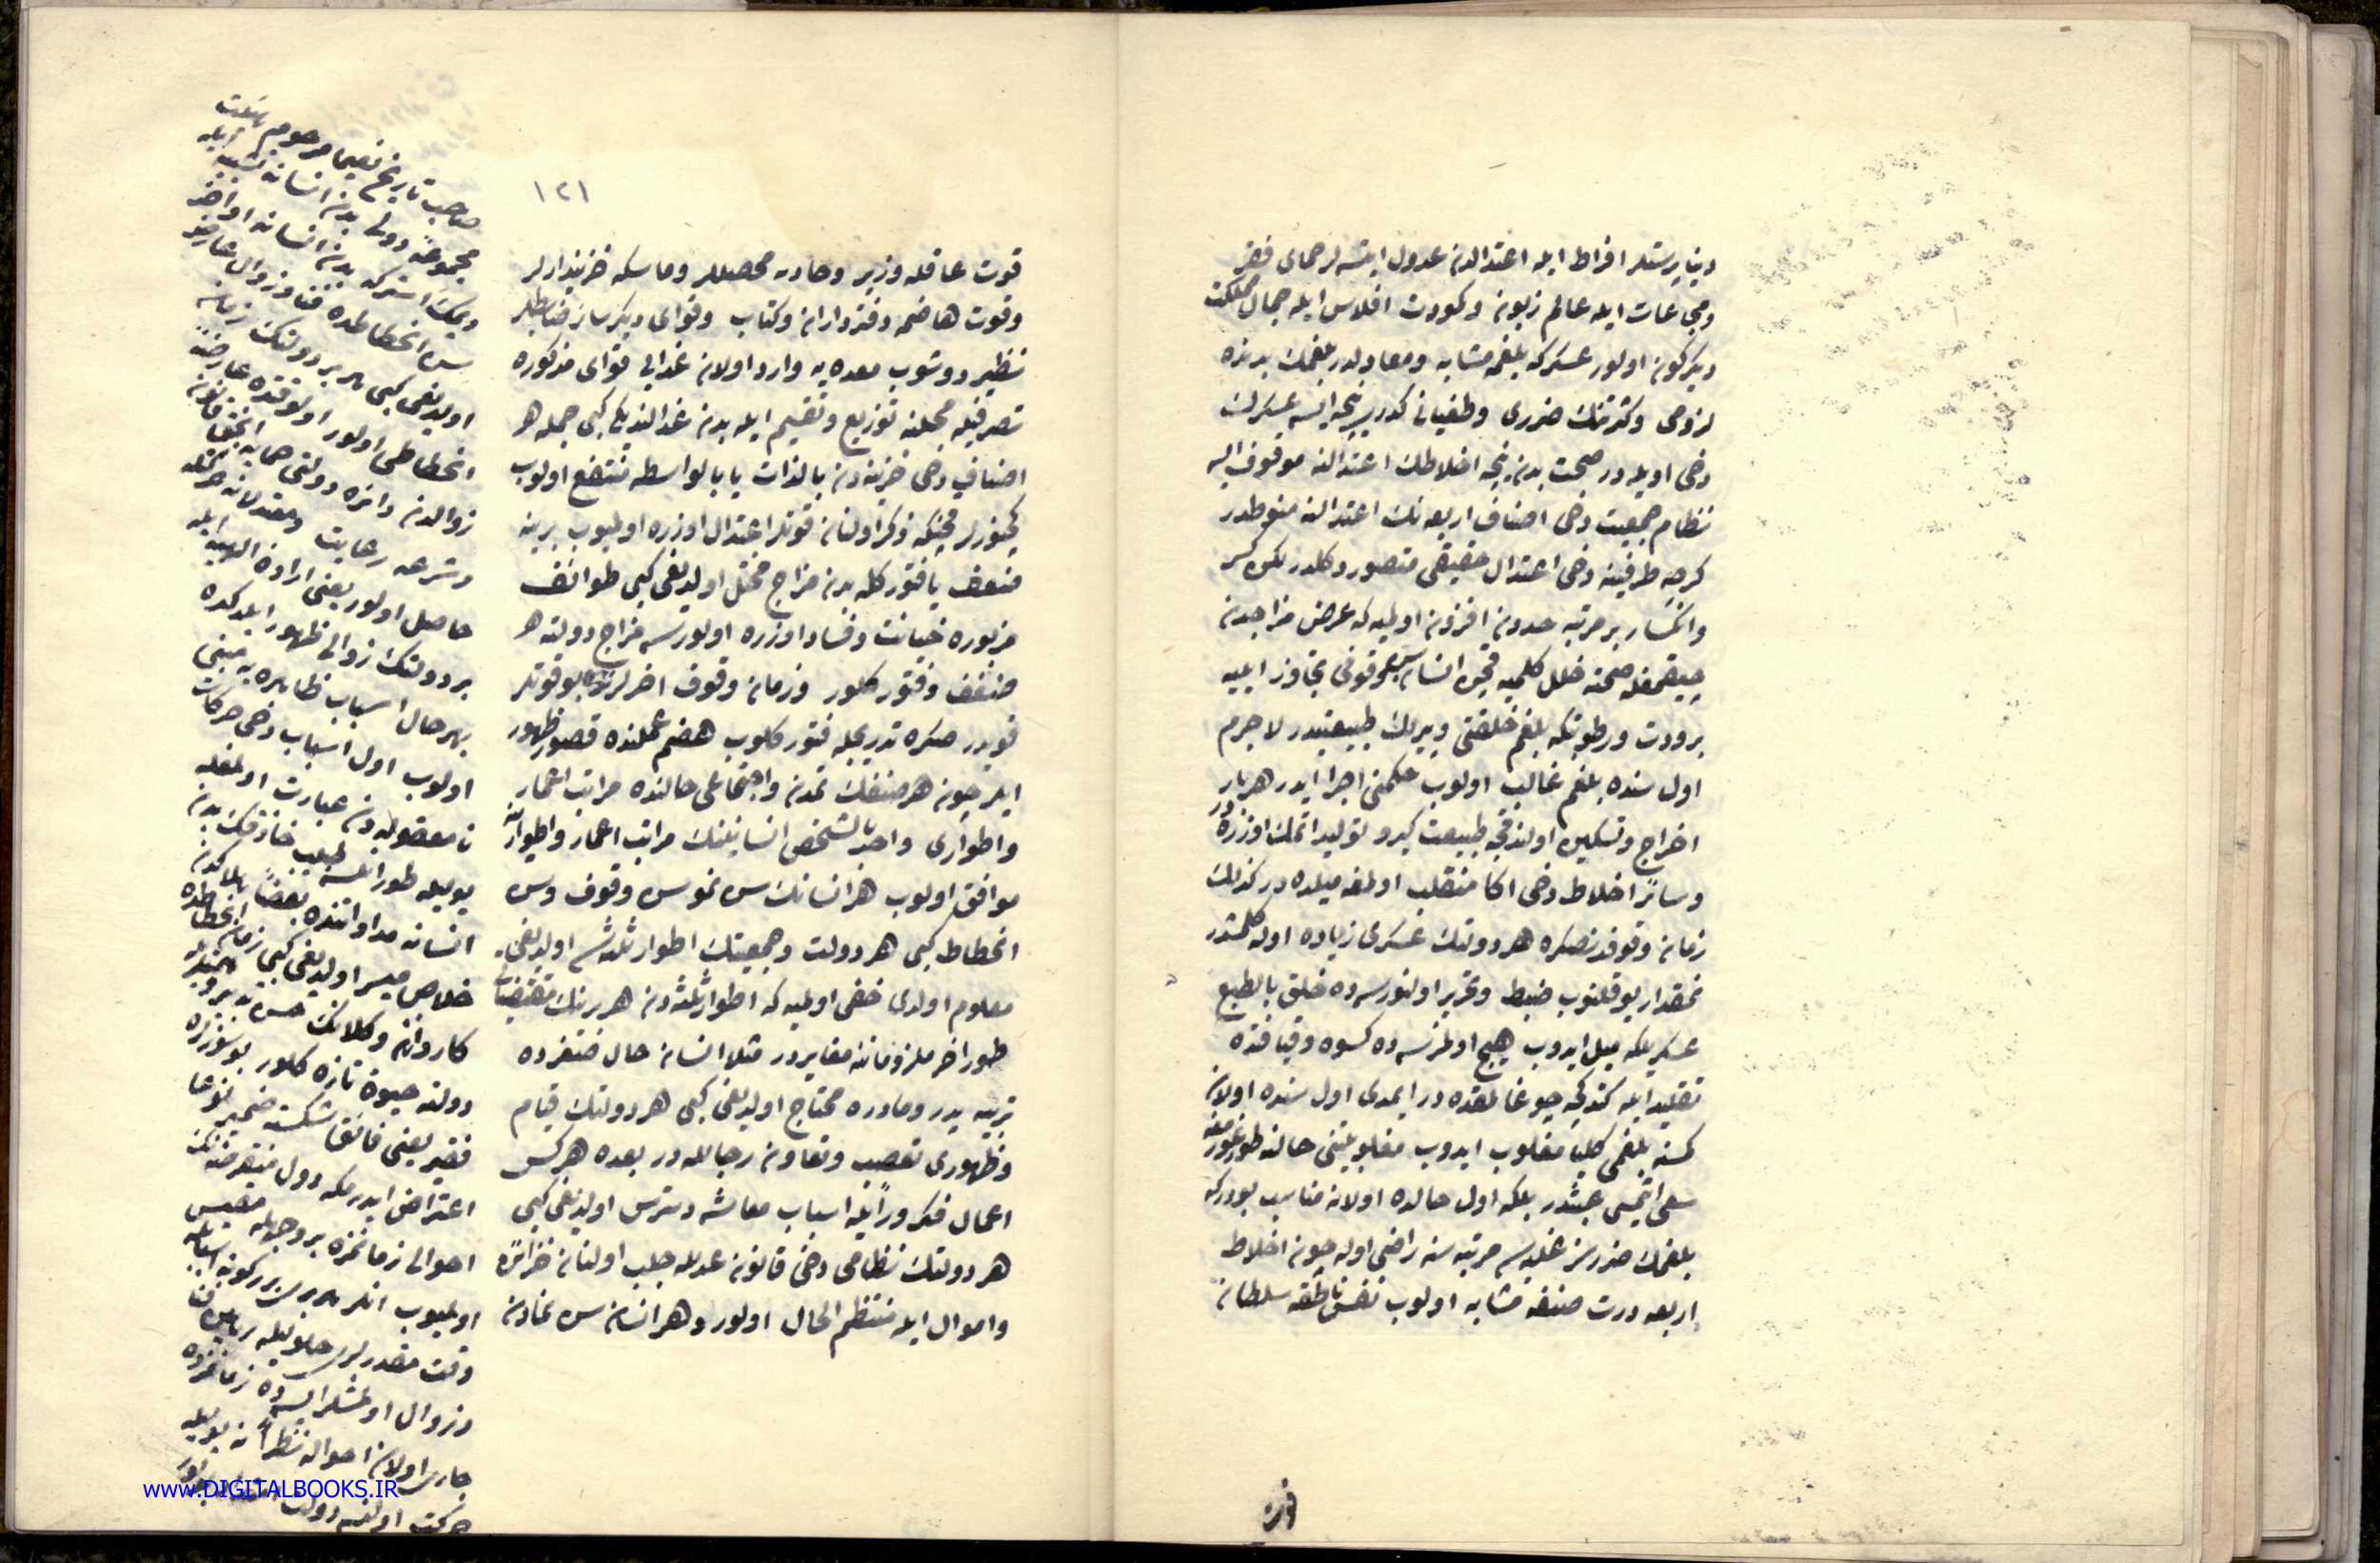 دنیا پرستلر افراط ایله اعتدالدن عدول ایتسه لر حمای فقر
و مجاعات ایله عالم زبون و کودت افلاس ایله جمال مملکت
دیکرکون اولور عسکر که بلغمه مشابه و معادلدر بلغمك بدنده
لزومی و کثرتنك ضرری و طغیانی کدر نیجه ایسه عسکرك
دخی اویله در صحت بدن نیجه اخلاطك اعتدالنه موقوف ایسه
نظام جمعیت دخی اصناف اربعه نك اعتدالنه منوطدر
کرچه طرفینه دخی اعتدال حقیقی متصور دکلدر لکن کسر
و انکسار بر مرتبه حددن افزون اولمیه که عرض مزاجدن
چیقمغله صحته خلل کلمیه قچن انسان سن وقوفی تجاوز ایلیه
برودت و رطوبتکه بلغم خلقتی و پیرلك طبیعتیدر لاجرم
اول سنده بلغم غالب اولوب حکمنی اجرا ایدر هر بار
اخراج و تسکین اولندقجه طبیعت کیرو تولید اتمك اوزره در
و سائر اخلاط دخی اکا منقلب اولمغه میلده در کذلك
زمان وقوفدنصکره هر دولتك عسکری زیاده اوله کلمشدر
نمقدار یوقلنوب ضبط و تحریر اولنورسه ده خلق بالطبع
عسکریلکه میل ایدوب هیچ اولمزسه ده کسوه و قیافتده
تقلید ایله کتدکجه چوغالمقده در ایمدی اول سنده اولان
کمسنه بلغمی کلیا مغلوب ایدوب مغلوبیتنی حالنه
سعی اتمیسی عبثدر بلکه اول حالده اولانه مناسب بودر که
بلغمك ضررسز غلبه سی مرتبه سنه راضی اوله چون اخلاط
اربعه درت صنفه مشابه اولوب نفس ناطقه سلطانه
قوت
١٢١
قوت عاقله وزیر و جاذبه محصللر و ماسکه خزینه دارلر
و قوت هاضمه دفترداران و کتاب و قوای دیکر سائر ضابطلر
نظیر دوشوب معده یه وارد اولان غذایی قوای مذکوره
تصرفیله محلنه توزیع و تقسیم ایله بدن غذالندیکی کبی جمله هر
اصناف دخی خزینه دن بالذات یا بالواسطه منتفع اولوب
کچنورلر قچنکه ذکر اولنان قوتلر اعتدال اوزره اولمیوب برینه
ضعف یا فتور کلسه بدن مزاج مختل اولدیغی کبی طوائف
مزبوره خیانت و فساد اوزره اولورسه مزاج دولته هر
ضعف و فتور کلور و زمان وقوف اخرلرنده بو قوتلر
قویدر صکره تدریجله فتور کلوب هضم عملنده قصور ظهور
ایدر چون هر صنفك تمدن و اجتماعی حالنده مراتب اعمار
و اطواری واحد بالشخص انسانینك مراتب اعمار و اطوارینه
موافق اولوب هر انسانك سن نمو سن وقوف و سن
انحطاط کبی هر دولت و جمعیتك اطوار ثلثه سی اولدیغی
معلوم اولدی خفی اولمیه که اطوار ثلثه دن هر برینك مقتضیاتی
طور اخر ملزوماتنه مغایردر مثلا انسان حال صغرده
تربیه پدر و مادره محتاج اولدیغی کبی هر دولتك قیام
و ظهوری تعصب و تعاون رجالله در بعده هر کس
اعمال فکر و رأیله اسباب معاشه دسترس اولدیغی کبی
هر دولتك نظامی دخی قانون عدلله جلب اولنان خزائن
و اموال ایله منتظم الحال اولور و هر انسان سن نمادن
صاحب تاریخ نعیما مرحوم
مجموعه دولی بدن انسانه تشبیه ایله
دیمك استر که بدن انسانه اواخر
سن انحطاطده فنا و زوال عارض
اولدیغی کبی هر بر دولتك زمان
انحطاطی اولور اولوقتده عارضه
زوالدن وانزه دولتی حمایه انجق قانون
و شرعه رعایت و
حاصل اولور یعنی اراده الهیه ایله
بر دولتك زوالی ظهور ایله که ده
بهر حال اسباب ظاهره یه مبنی
اولوب اول اسباب دخی حرکات
نامعقوله دن عبارت اولمغله
بویله طورلسه طبیب حاذقك بدن
انسانه مداواتنده بعضاً هلاکدن
خلاص میسر اولدیغی کبی زمان انحطاطده
کاردان وکلانك حسن تدبیریله
دولته حیوة تازه کلور بو سوزلره
فقیر یعنی فائق شکسته ضمیر نوعا
اعتراض ایدرم که دول منقرضه نك
احوالی زمانمزه بر وجهله مقیس
اولمیوب انلر هر بری بر کونه اسبابله
وقت مقدرلری حلولیله رهین فنا
و زوال اولمشلر ایسه ده زمانمزده
جاری اولان احواله نظراً نه بویله
حرکت اولنسه دولت